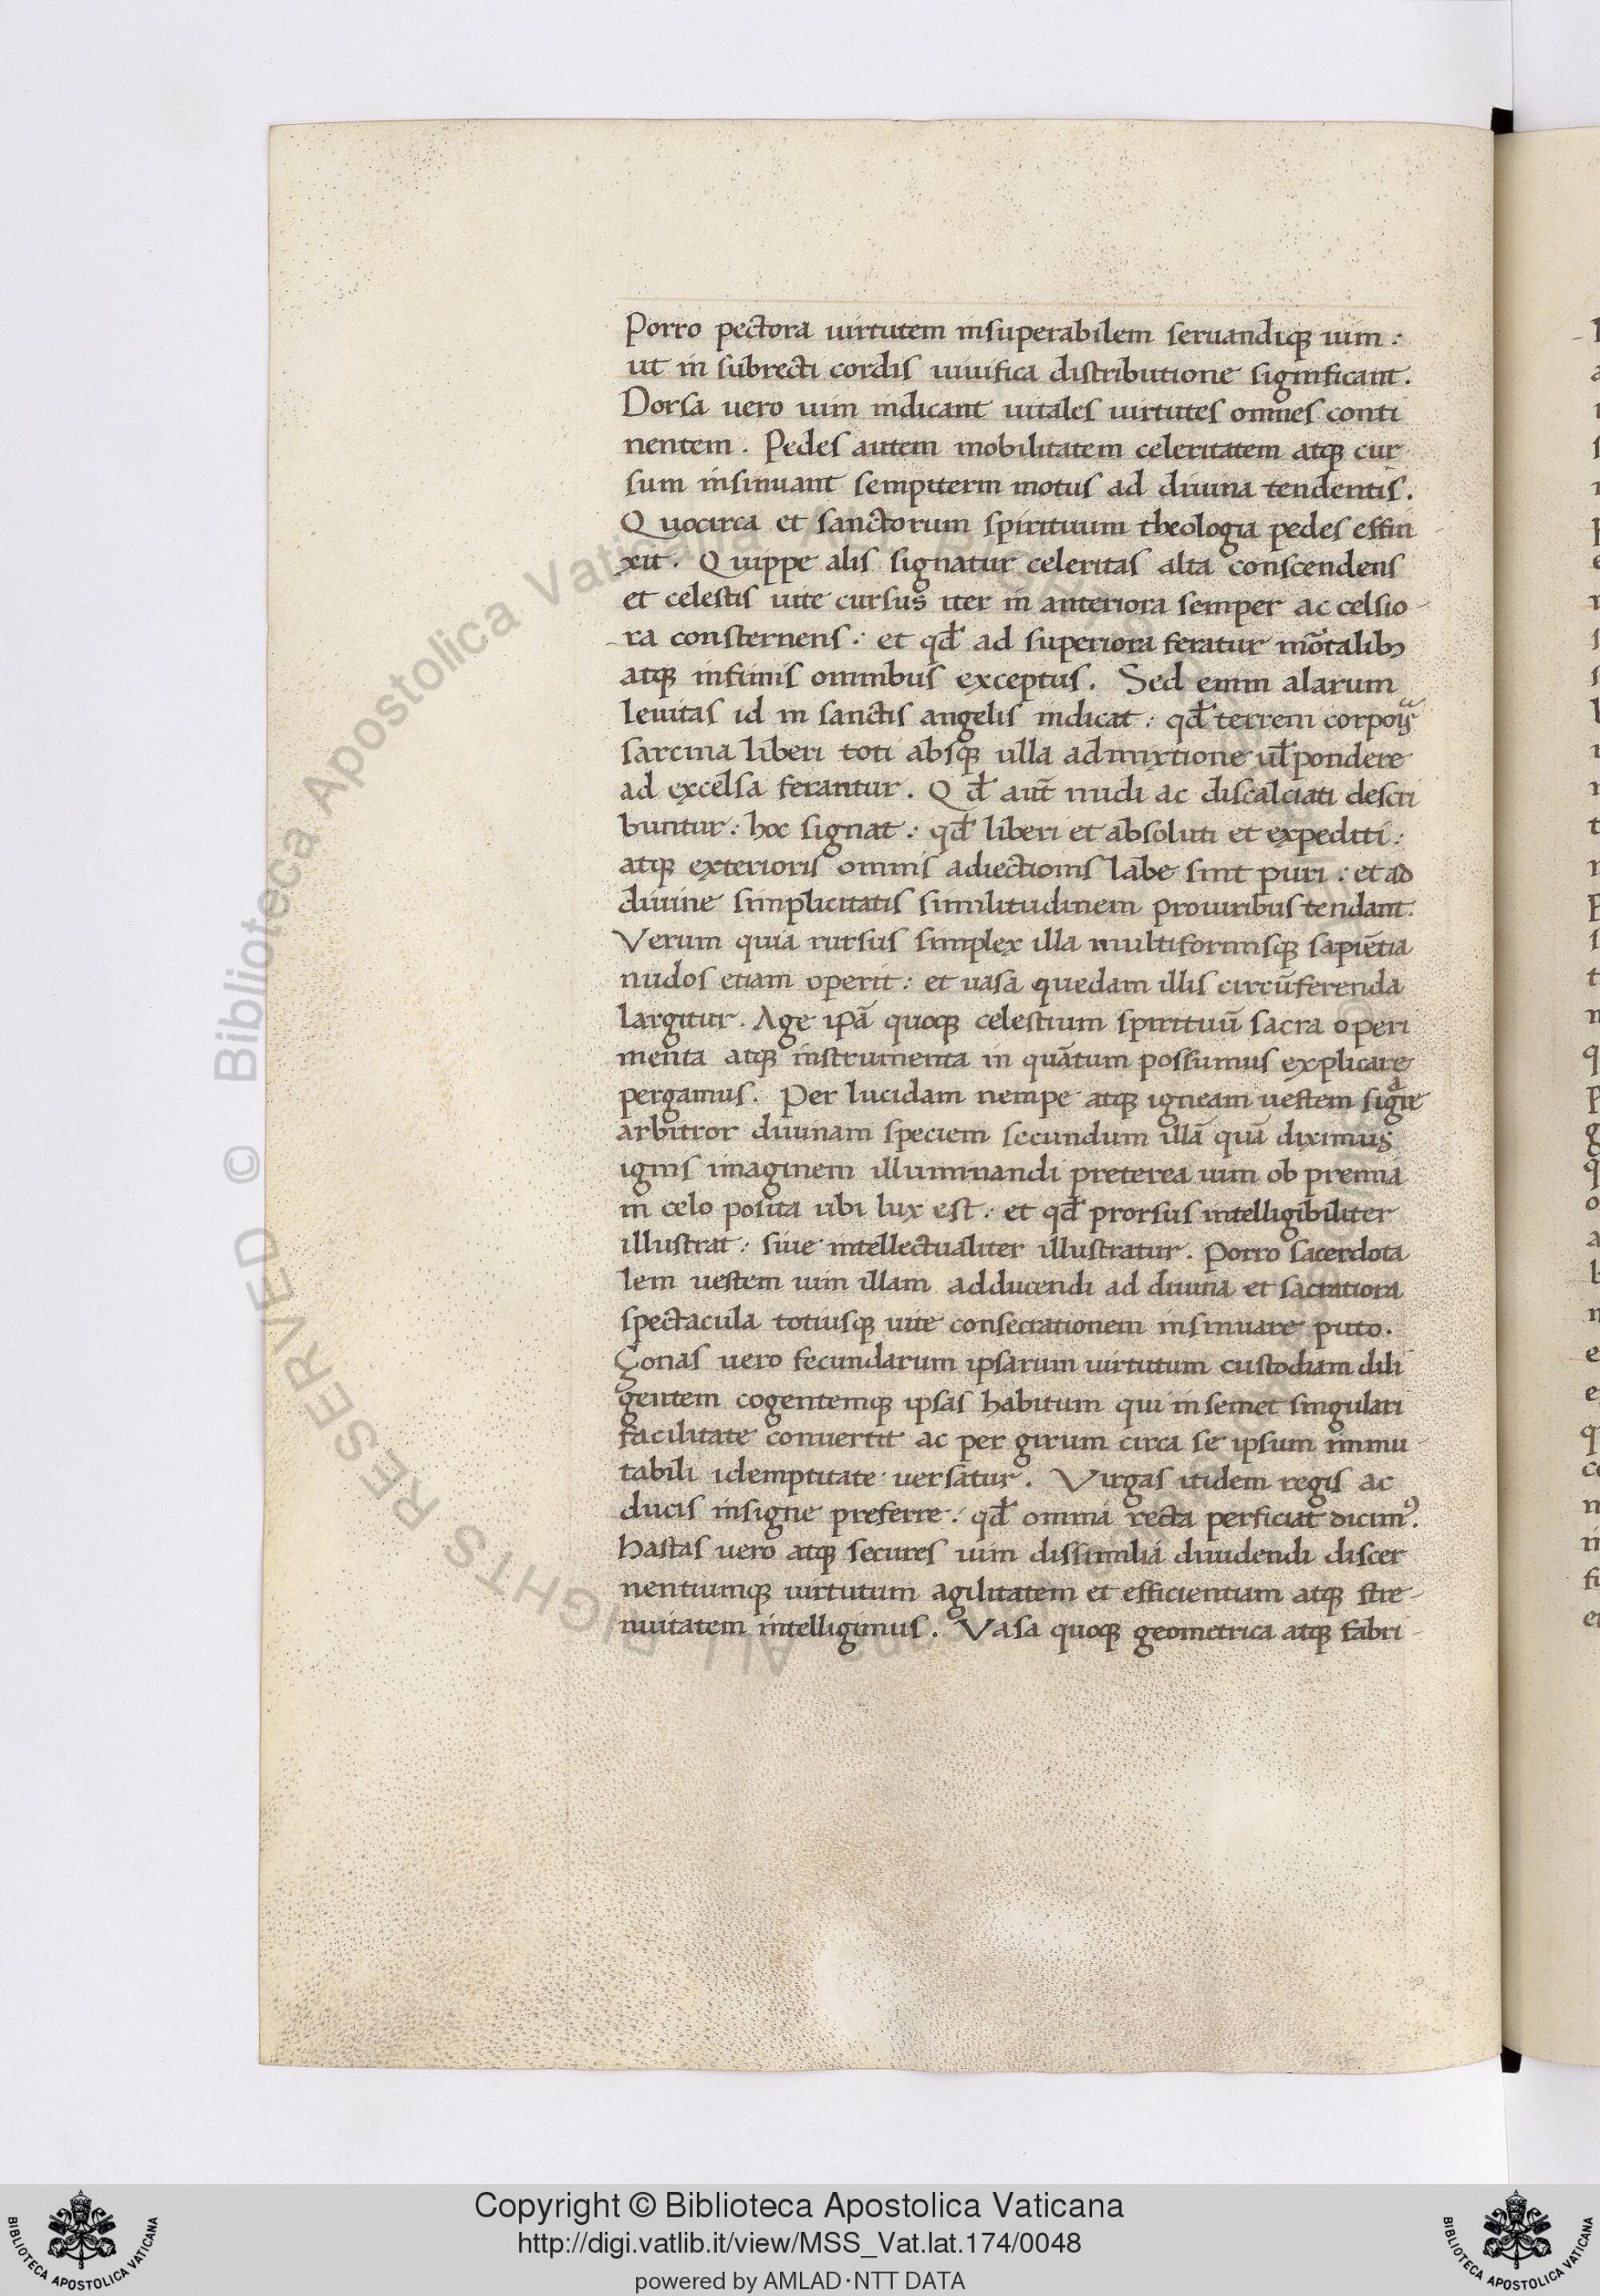 Porro pectora uirtutem insuperabilem seruandiqꝫ uim :
ut in subrecti cordis uiuifica distributione significant.
Dorsa uero uim indicant uitales uirtutes omnes conti
nentem. Pedes autem mobilitatem celeritatem atqꝫ cur
sum insinuant sempiterni motus ad diuina tendentis.
Quocirca et sanctorum spirituum theologia pedes effin
xit. Quippe alis signatur celeritas alta conscendens
et celestis uite cursus iter in anteriora semper ac celsio-
ra consternens : et qđ ad superiora feratur mõtalibꝫ
atqꝫ infimis omnibus exceptus. Sed enim alarum
leuitas id in sanctis angelis indicat : qđ terreni corpoıͣs
sarcina liberi toti absqꝫ ulla admixtione uł pondere
ad excelsa ferantur. Qđ aut̃ nudi ac discalciati descri
buntur : hoc signat : qđ liberi et absoluti et expediti :
atqꝫ exterioris omnis adiectionis labe sint puri : et ad
diuine simplicitatis similitudinem prouiribus tendant.
Verum quia rursus simplex illa multiformisqꝫ sapiẽtia
nudos etiam operit : et uasa quedam illis circũferenda
largitur. Age ip̃a quoqꝫ celestium spirituũ sacra operi
menta atqꝫ instrumenta in quãtum possumus explicare
pergamus. Per lucidam nempe atqꝫ igneam uestem sigͣre
arbitror diuinam speciem secundum illã quã diximus
ignis imaginem illuminandi preterea uim ob premia
in celo posita ubi lux est : et qđ prorsus intelligibiliter
illustrat : siue intellectualiter illustratur. Porro sacerdota
lem uestem uim illam adducendi ad diuina et sacratiora
spectacula totiusqꝫ uite consecrationem insinuare puto.
Çonas uero fecundarum ipsarum uirtutum custodiam dili
gentem cogentemqꝫ ipsas habitum qui insemet singulari
facilitate conuertit ac per girum circa se ipsum immu-
tabili idemptitate uersatur. Virgas itidem regis ac
ducis insigne preferre : qđ omnia recta perficiat dicimꝰ.
Hastas uero atqꝫ secures uim dissimilia diuidendi discer
nentiumqꝫ uirtutum agilitatem et efficientiam atqꝫ stre-
nuitatem intelligimus. Vasa quoqꝫ geometrica atqꝫ fabri-
© Biblioteca Apostolica Vaticana
ALL RIGHTS RESERVED
Copyright © Biblioteca Apostolica Vaticana
http://digi.vatlib.it/view/MSS_Vat.lat.174/0048
powered by AMLAD·NTT DATA
BIBLIOTECA APOSTOLICA VATICANA
BIBLIOTECA APOSTOLICA VATICANA